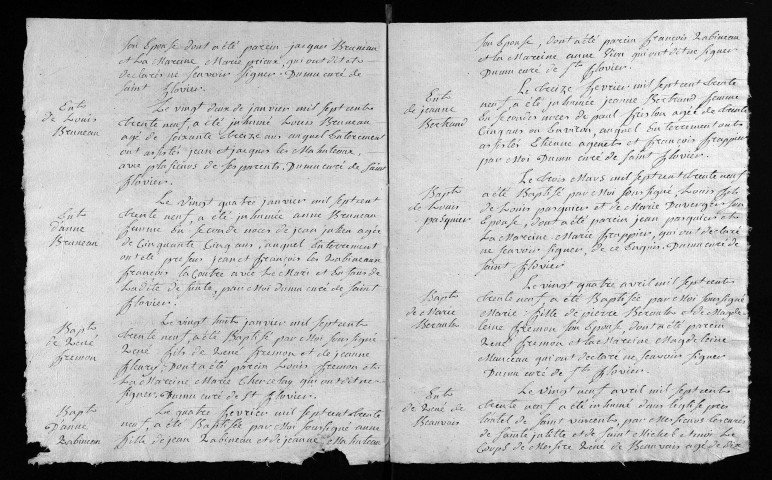 son Epouse dont a été parein jacques Bruneau
et La Mareine Marie prieux, qui ont dit et
declaré ne sçavoir signer. Dumu curé de
saint flovier.
Ent
de Louis
Bruneau
Le vingt deux de janvier mil sept cent
trente neuf, a été inhumé Louis Bruneau
agé de soixante treize ans auquel Enterement
ont assistés jean et jacques les Mahuteaux
avec plusieurs de ses parents. Dumu curé de saint
flovier
Ent
d'anne
Bruneau
Le vingt quatre janvier mil sept cent
trente neuf, a été inhumée anne Bruneau
femme en seconde noces de jean julien agée
de Cinquante Cinq ans, auquel Enterrement
ont été present jean et françois les Rabineaux
françois avec Le Mari et Enfans de
La dite defunte, par Moi Dumu curé de saint
flovier.
Bapt
de René
fremon
Le vingt huit janvier mil sept cent
trente neuf, a été Baptisé par Moi soussigné
René fils de René fremon et de jeanne
fleury. Dont a été parein Louis fremon et
La Mareine Marie qui ont dit ne
signer. Dumu curé de St flovier.
Bapt
D'anne
Rabineau
Le quatre fevrier mil sept cent trente
neuf, a été Baptisée par Moi soussigné anne
fille de jean Rabineau et de jeanne Mahuteau
son Epouse, dont a été parein françois Rabineau
et La Mareine anne qui ont dit ne signer
Dumu curé de St flovier.
Ent
de jeanne
Bertrand
Le treize fevrier mil sept cent trente
neuf, a été inhumée jeanne Bertrand femme
en secondes noces de paul frislon agée de trente
Cinq ans ou Environ, auquel Enterrement ont
assistés Etienne et françois frappier
par Moi Dumu curé de saint flovier.
Bapt
de Louis
pasquier
Le trois Mars mil sept cent trente neuf
a été Baptisé par Moi soussigné, Louis fils
de Louis pasquier et de Marie Duverger son
Epouse, dont a été parein jean pasquier et
La Mareine Marie frappier, qui ont declaré
ne sçavoir signer, de ce Enquis. Dumu curé de
saint flovier
Bapt
de Marie
Berault
Le vingt quatre avril mil sept cent
trente neuf, a été Baptisée par Moi soussigné
Marie fille de pierre Berault et de Magde-
leine fremon son Epouse, dont a été parein
René fremon et La Mareine Magdeleine
qui ont declaré ne sçavoir signer
Dumu curé de St flovier
Ent
de René de
Beauvais
Le vingt neuf avril mil sept cent
trente neuf a été inhumé dans l'eglise pres
l'autel de saint vincent, par Messieurs les curés
de sainte julitte et de saint Michel Le
Corps de Messire René de Beauvais agé de dix